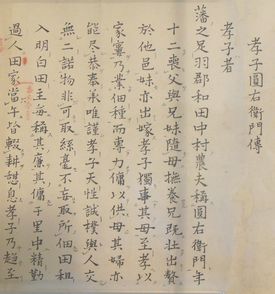 孝子圓右衛門傳
孝子者
藩之足羽郡和田中村農夫稱圓右衛門年
十二喪父與兄妹隨母撫養兄既壮出贅
於他邑妹亦出嫁孝子獨事其母至孝以
家寠乃業佃種而專力傭以供母其婦亦
能尽恭養兼唯謹孝子天性誠樸與人交
無二諾物非可取絲毫不妄取所佃田租
入明白田主每稱其廉其傭于里中精勤
過人田家當午皆輟耕甜息孝子乃趨至